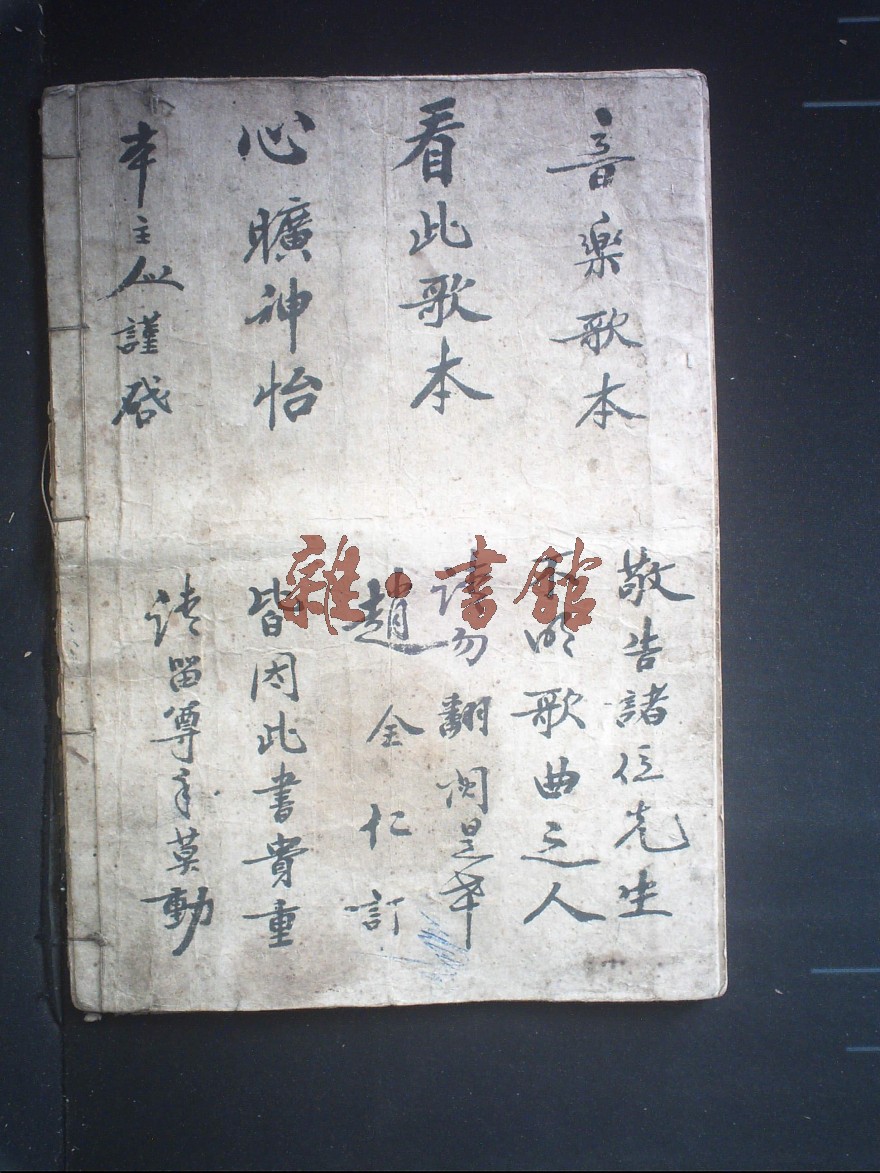 音楽歌本
看此歌本
心曠神怡
本主人謹啓
敬告諸位先生
不明歌曲之人
请勿翻閱是幸
趙金仁訂
皆因此書貴重
请留尊手莫動
雜·書館